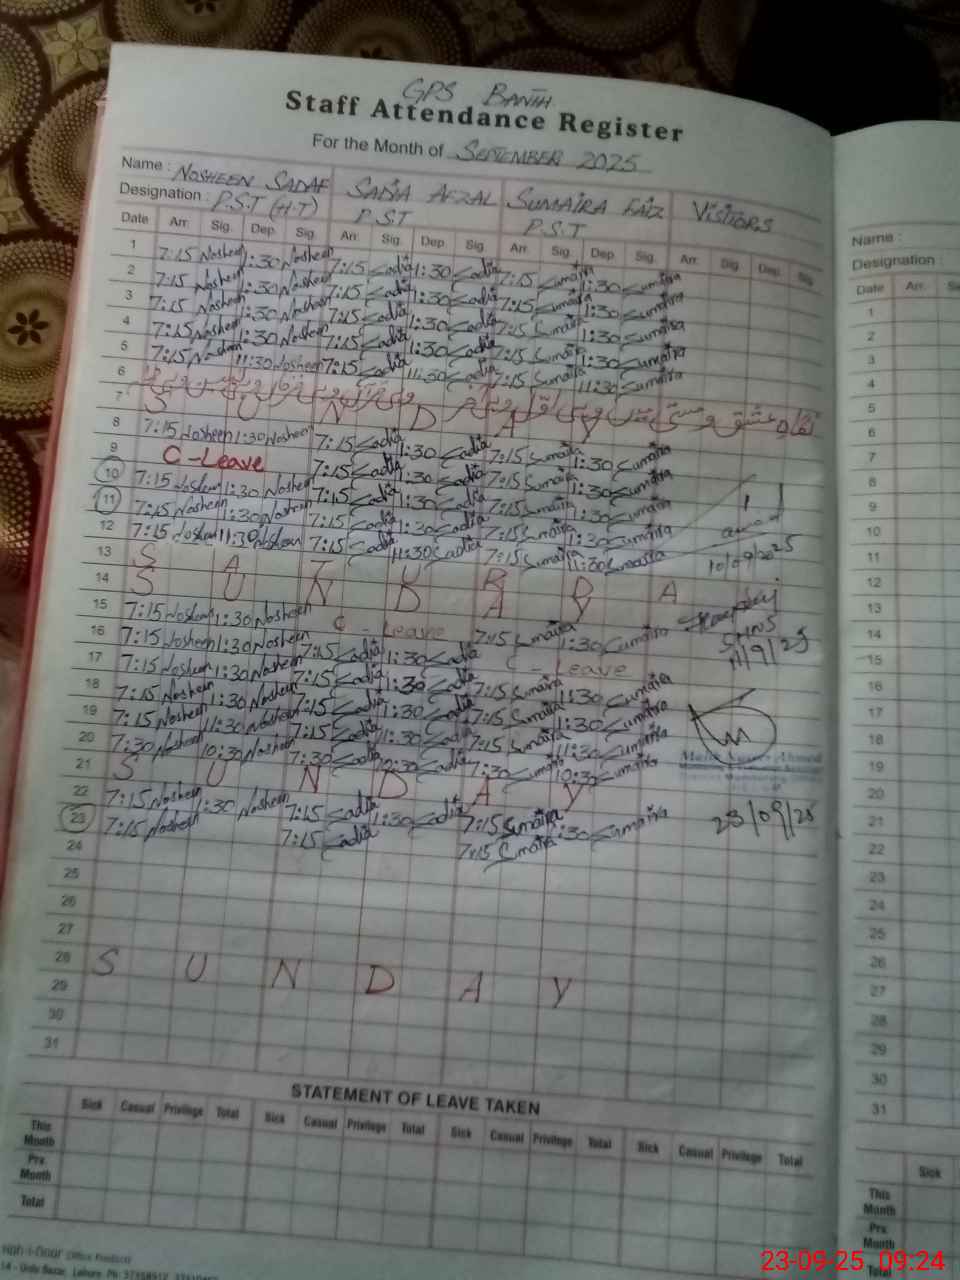 GPS BANTH
Staff Attendance Register
For the Month of SEPTEMBER 2025
Name : NOSHEEN SADAF SADIA AFZAL SUMAIRA FAIZ VISTIORS
Designation : P.S.T (H.T) P.S.T P.S.T
Date Arr. Sig. Dep. Sig. Arr. Sig. Dep. Sig. Arr. Sig. Dep. Sig. Arr. Sig. Dep. Sig.
1 7:15 Nosheen 1:30 Nosheen 7:15 Sadia 1:30 Sadia 7:15 Sumaira 1:30 Sumaira
2 7:15 Nosheen 1:30 Nosheen 7:15 Sadia 1:30 Sadia 7:15 Sumaira 1:30 Sumaira
3 7:15 Nosheen 1:30 Nosheen 7:15 Sadia 1:30 Sadia 7:15 Sumaira 1:30 Sumaira
4 7:15 Nosheen 1:30 Nosheen 7:15 Sadia 1:30 Sadia 7:15 Sumaira 1:30 Sumaira
5 7:15 Nosheen 11:30 Nosheen 7:15 Sadia 11:30 Sadia 7:15 Sumaira 11:30 Sumaira
6 نگاہ عشق و مستی میں وہی اول وہی آخر وہی قرآں وہی فرقاں وہی یٰسیں وہی طٰہٰ
7 S U N D A Y
8 7:15 Nosheen 1:30 Nosheen 7:15 Sadia 1:30 Sadia 7:15 Sumaira 1:30 Sumaira
9 C-Leave 7:15 Sadia 1:30 Sadia 7:15 Sumaira 1:30 Sumaira
10 7:15 Nosheen 1:30 Nosheen 7:15 Sadia 1:30 Sadia 7:15 Sumaira 1:30 Sumaira
11 7:15 Nosheen 1:30 Nosheen 7:15 Sadia 1:30 Sadia 7:15 Sumaira 1:30 Sumaira
12 7:15 Nosheen 11:30 Nosheen 7:15 Sadia 11:30 Sadia 7:15 Sumaira 11:30 Sumaira
10/09/2025
13 S A T U R D A Y
14 S U N D A Y
15 7:15 Nosheen 1:30 Nosheen C - Leave 7:15 Sumaira 1:30 Sumaira
11/9/25
16 7:15 Nosheen 1:30 Nosheen 7:15 Sadia 1:30 Sadia C - Leave
17 7:15 Nosheen 1:30 Nosheen 7:15 Sadia 1:30 Sadia 7:15 Sumaira 1:30 Sumaira
18 7:15 Nosheen 1:30 Nosheen 7:15 Sadia 1:30 Sadia 7:15 Sumaira 1:30 Sumaira
19 7:15 Nosheen 11:30 Nosheen 7:15 Sadia 11:30 Sadia 7:15 Sumaira 11:30 Sumaira
20 7:30 Nosheen 10:30 Nosheen 7:30 Sadia 10:30 Sadia 7:30 Sumaira 10:30 Sumaira
21 S U N D A Y
22 7:15 Nosheen 1:30 Nosheen 7:15 Sadia 1:30 Sadia 7:15 Sumaira 1:30 Sumaira
23 7:15 Nosheen 7:15 Sadia 7:15 Sumaira
23/09/25
24
25
26
27
28 S U N D A Y
29
30
31
STATEMENT OF LEAVE TAKEN
Sick Casual Privilege Total Sick Casual Privilege Total Sick Casual Privilege Total Sick Casual Privilege Total
This Month
Prv. Month
Total
Name :
Designation :
Date Arr.
1
2
3
4
5
6
7
8
9
10
11
12
13
14
15
16
17
18
19
20
21
22
23
24
25
26
27
28
29
30
31
Sick
This Month
Prv. Month
Total
23-09-25 09:24